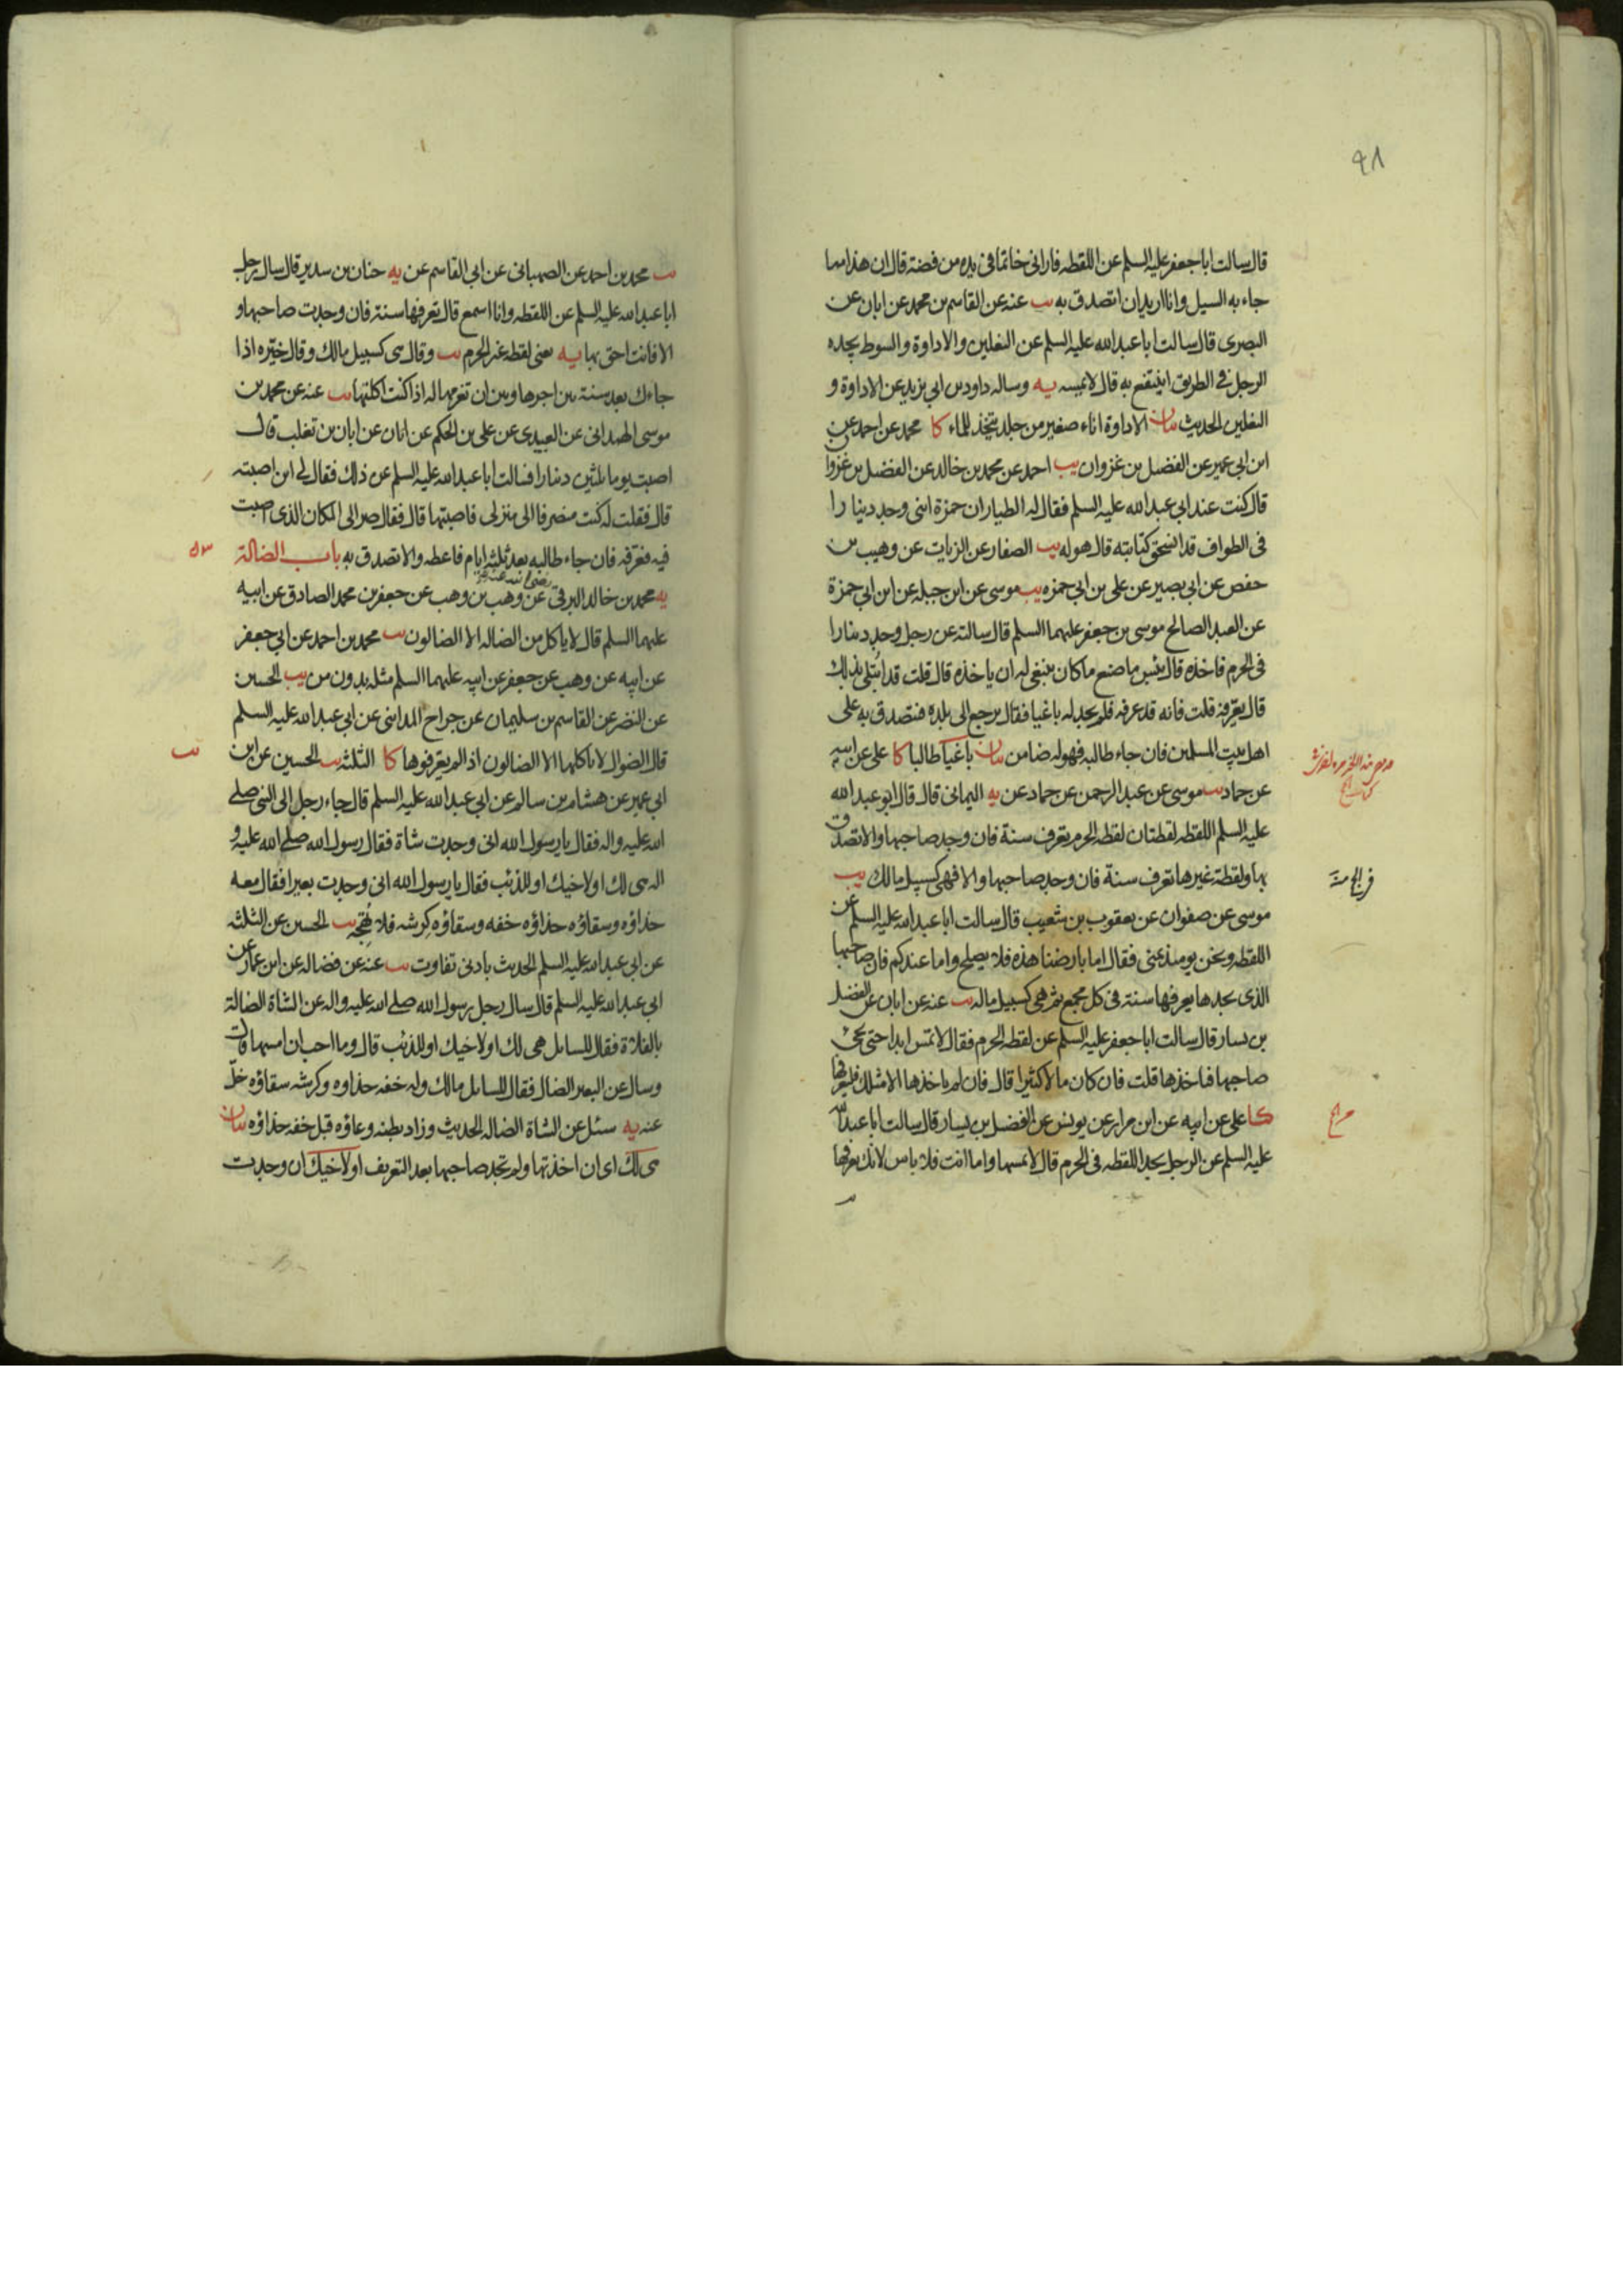 ٩٨
قال سالت ابا جعفر عليه السلم عن اللقطه فارانى خاتما فى يده من فضة قال ان هذا مما
جاء به السيل وانا اريد ان اتصدق به يب عنه عن القاسم بن محمد عن ابان عن
البصرى قال سالت ابا عبد الله عليه السلم عن النعلين والاداوة والسوط يجده
الرجل فى الطريق اينتفع به قال لا يمسه يه وساله داود بن ابي يزيد عن الاداوة و
النعلين الحديث بيان الاداوة اناء صغير من جلد يتخذ للماء كا محمد عن احمد عن
ابن ابي عمير عن الفضيل بن غزوان يب احمد عن محمد بن خالد عن الفضيل بن غزوان
قال كنت عند ابى عبد الله عليه السلم فقال له الطيار ان حمزة ابنى وجد دينارا
فى الطواف قد انسحق كتابته قال هو له يب الصفار عن الزيات عن وهيب بن
حفص عن ابي بصير عن على بن ابي حمزه يب موسى عن ابن جبله عن ابن ابي حمزة
عن العبد الصالح موسى بن جعفر عليهما السلم قال سالته عن رجل وجد دينارا
فى الحرم فاخذه قال بئس ما صنع ما كان ينبغى له ان ياخذه قال قلت قد ابتلى بذلك
قال يعرفه قلت فانه قد عرفه فلم يجد له باغيا فقال يرجع الى بلده فتصدق به على
اهل بيت المسلمين فان جاء طالبه فهو له ضامن بيان باغيا طالبا كا على عن ابيه
عن حماد يب موسى عن عبد الرحمن عن حماد عن يه اليمانى قال قال ابو عبد الله
عليه السلم اللقطه لقطتان لقطه الحرم يعرف سنة فان وجد صاحبها والا تصدق
بها ولقطة غيرها تعرف سنة فان وجد صاحبها والا فهى كسبيل مالك يب
موسى عن صفوان عن يعقوب بن شعيب قال سالت ابا عبد الله عليه السلم عن
اللقطه ونحن يومئذ بمنى فقال اما بارضنا هذه فلا يصلح واما عندكم فان صاحبها
الذى يجدها يعرفها سنة فى كل مجمع ثم هى كسبيل ماله يب عنه عن ابان عن الفضيل
بن يسار قال سالت ابا جعفر عليه السلم عن لقطه الحرم فقال لا تمس ابدا حتى يجئ
صاحبها فياخذها قلت فان كان مالا كثيرا قال فان لم ياخذها الا مثلك فليعرفها
كا على عن ابيه عن ابن مرار عن يونس عن الفضيل بن يسار قال سالت ابا عبد الله
عليه السلم عن الرجل يجد اللقطه فى الحرم قال لا يمسها واما انت فلا باس لانك تعرفها
يب محمد بن احمد عن الصهبانى عن ابى القاسم عن يه حنان بن سدير قال سال رجل
ابا عبد الله عليه السلم عن اللقطه وانا اسمع قال تعرفها سنة فان وجدت صاحبها و
الا فانت احق بها يه يعنى لقطه غير الحرم يب وقال هى كسبيل مالك وقال خيّره اذا
جاءك بعد سنة بين اجرها وبين ان تغرمها له اذا كنت اكلتها يب عنه عن محمد بن
موسى الهمدانى عن العبيدى عن على بن الحكم عن ابان عن ابان بن تغلب قال
اصبت يوما ثلثين دينارا فسالت ابا عبد الله عليه السلم عن ذلك فقال لى اين اصبته
قال فقلت له كنت منصرفا الى منزلى فاصبتها قال فقال صر الى المكان الذى اصبت
فيه فعرفه فان جاء طالبه بعد ثلثه ايام فاعطه والا تصدق به باب الضالة
٥٣
يه محمد بن خالد البرقى رضى الله عنه عن وهب بن وهب عن جعفر بن محمد الصادق عن ابيه
عليهما السلم قال لا ياكل من الضاله الا الضالون يب محمد بن احمد عن ابى جعفر
عن ابيه عن وهب عن جعفر عن ابيه عليهما السلم مثله بدون من يب الحسين
عن النضر عن القاسم بن سليمان عن جراح المداينى عن ابى عبد الله عليه السلم
قال الضوال لا ياكلها الا الضالون اذا لم يعرفوها كا الثلثه يب الحسين عن ابن
ابى عمير عن هشام بن سالم عن ابى عبد الله عليه السلم قال جاء رجل الى النبى صلى
الله عليه واله فقال يا رسول الله انى وجدت شاة فقال رسول الله صلى الله عليه و
اله هى لك او لاخيك او للذئب فقال يا رسول الله انى وجدت بعيرا فقال معه
حذاؤه وسقاؤه حذاؤه خفه وسقاؤه كرشه فلا تهجه يب الحسين عن الثلثه
عن ابى عبد الله عليه السلم الحديث بادنى تفاوت يب عنه عن فضاله عن ابن عمار عن
ابى عبد الله عليه السلم قال سال رجل رسول الله صلى الله عليه واله عن الشاة الضالة
بالفلاة فقال للسائل هى لك او لاخيك او للذئب قال وما احب ان امسها قال
وسال عن البعير الضال فقال للسائل مالك وله خفه حذاوه وكرشه سقاؤه خلّ
عنه يه سئل عن الشاة الضاله الحديث وزاد بطنه وعاؤه قبل خفه حذاؤه بيان
هى لك اى ان اخذتها ولم تجد صاحبها بعد التعريف او لاخيك ان وجدت